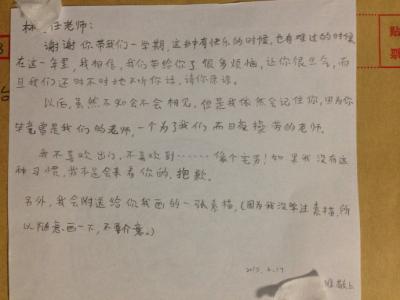 林 任老师:
谢谢你带我们一学期,这其中有快乐的时候,也有难过的时候
在这一年里,我相信,我们带给你了很多烦恼,让你很生气,而
且我们还时不时地不听你话,请你原谅。
以后,虽然不知会不会相见,但是我依然会记住你,因为你
毕竟曾是我们的老师,一个为了我们而日夜操劳的老师。
我不喜欢出门,不喜欢到……像个宅男!如果我没有这
种习惯,我不是会来看你的,抱歉。
另外,我会附送给你我画的一张素描,(因为我没学过素描,所
以随意画一下,不要介意。)
2013.6.19
敬上
贴
票
台